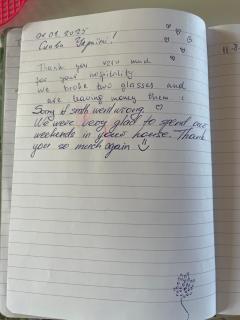 04.01.2025
Слава Україні!
Thank you very much
for your hospitality
We broke two glasses and
are leaving money them :
Sorry if smth went wrong. ♡
We were very glad to spend our
weekends in your house. Thank
you so much again